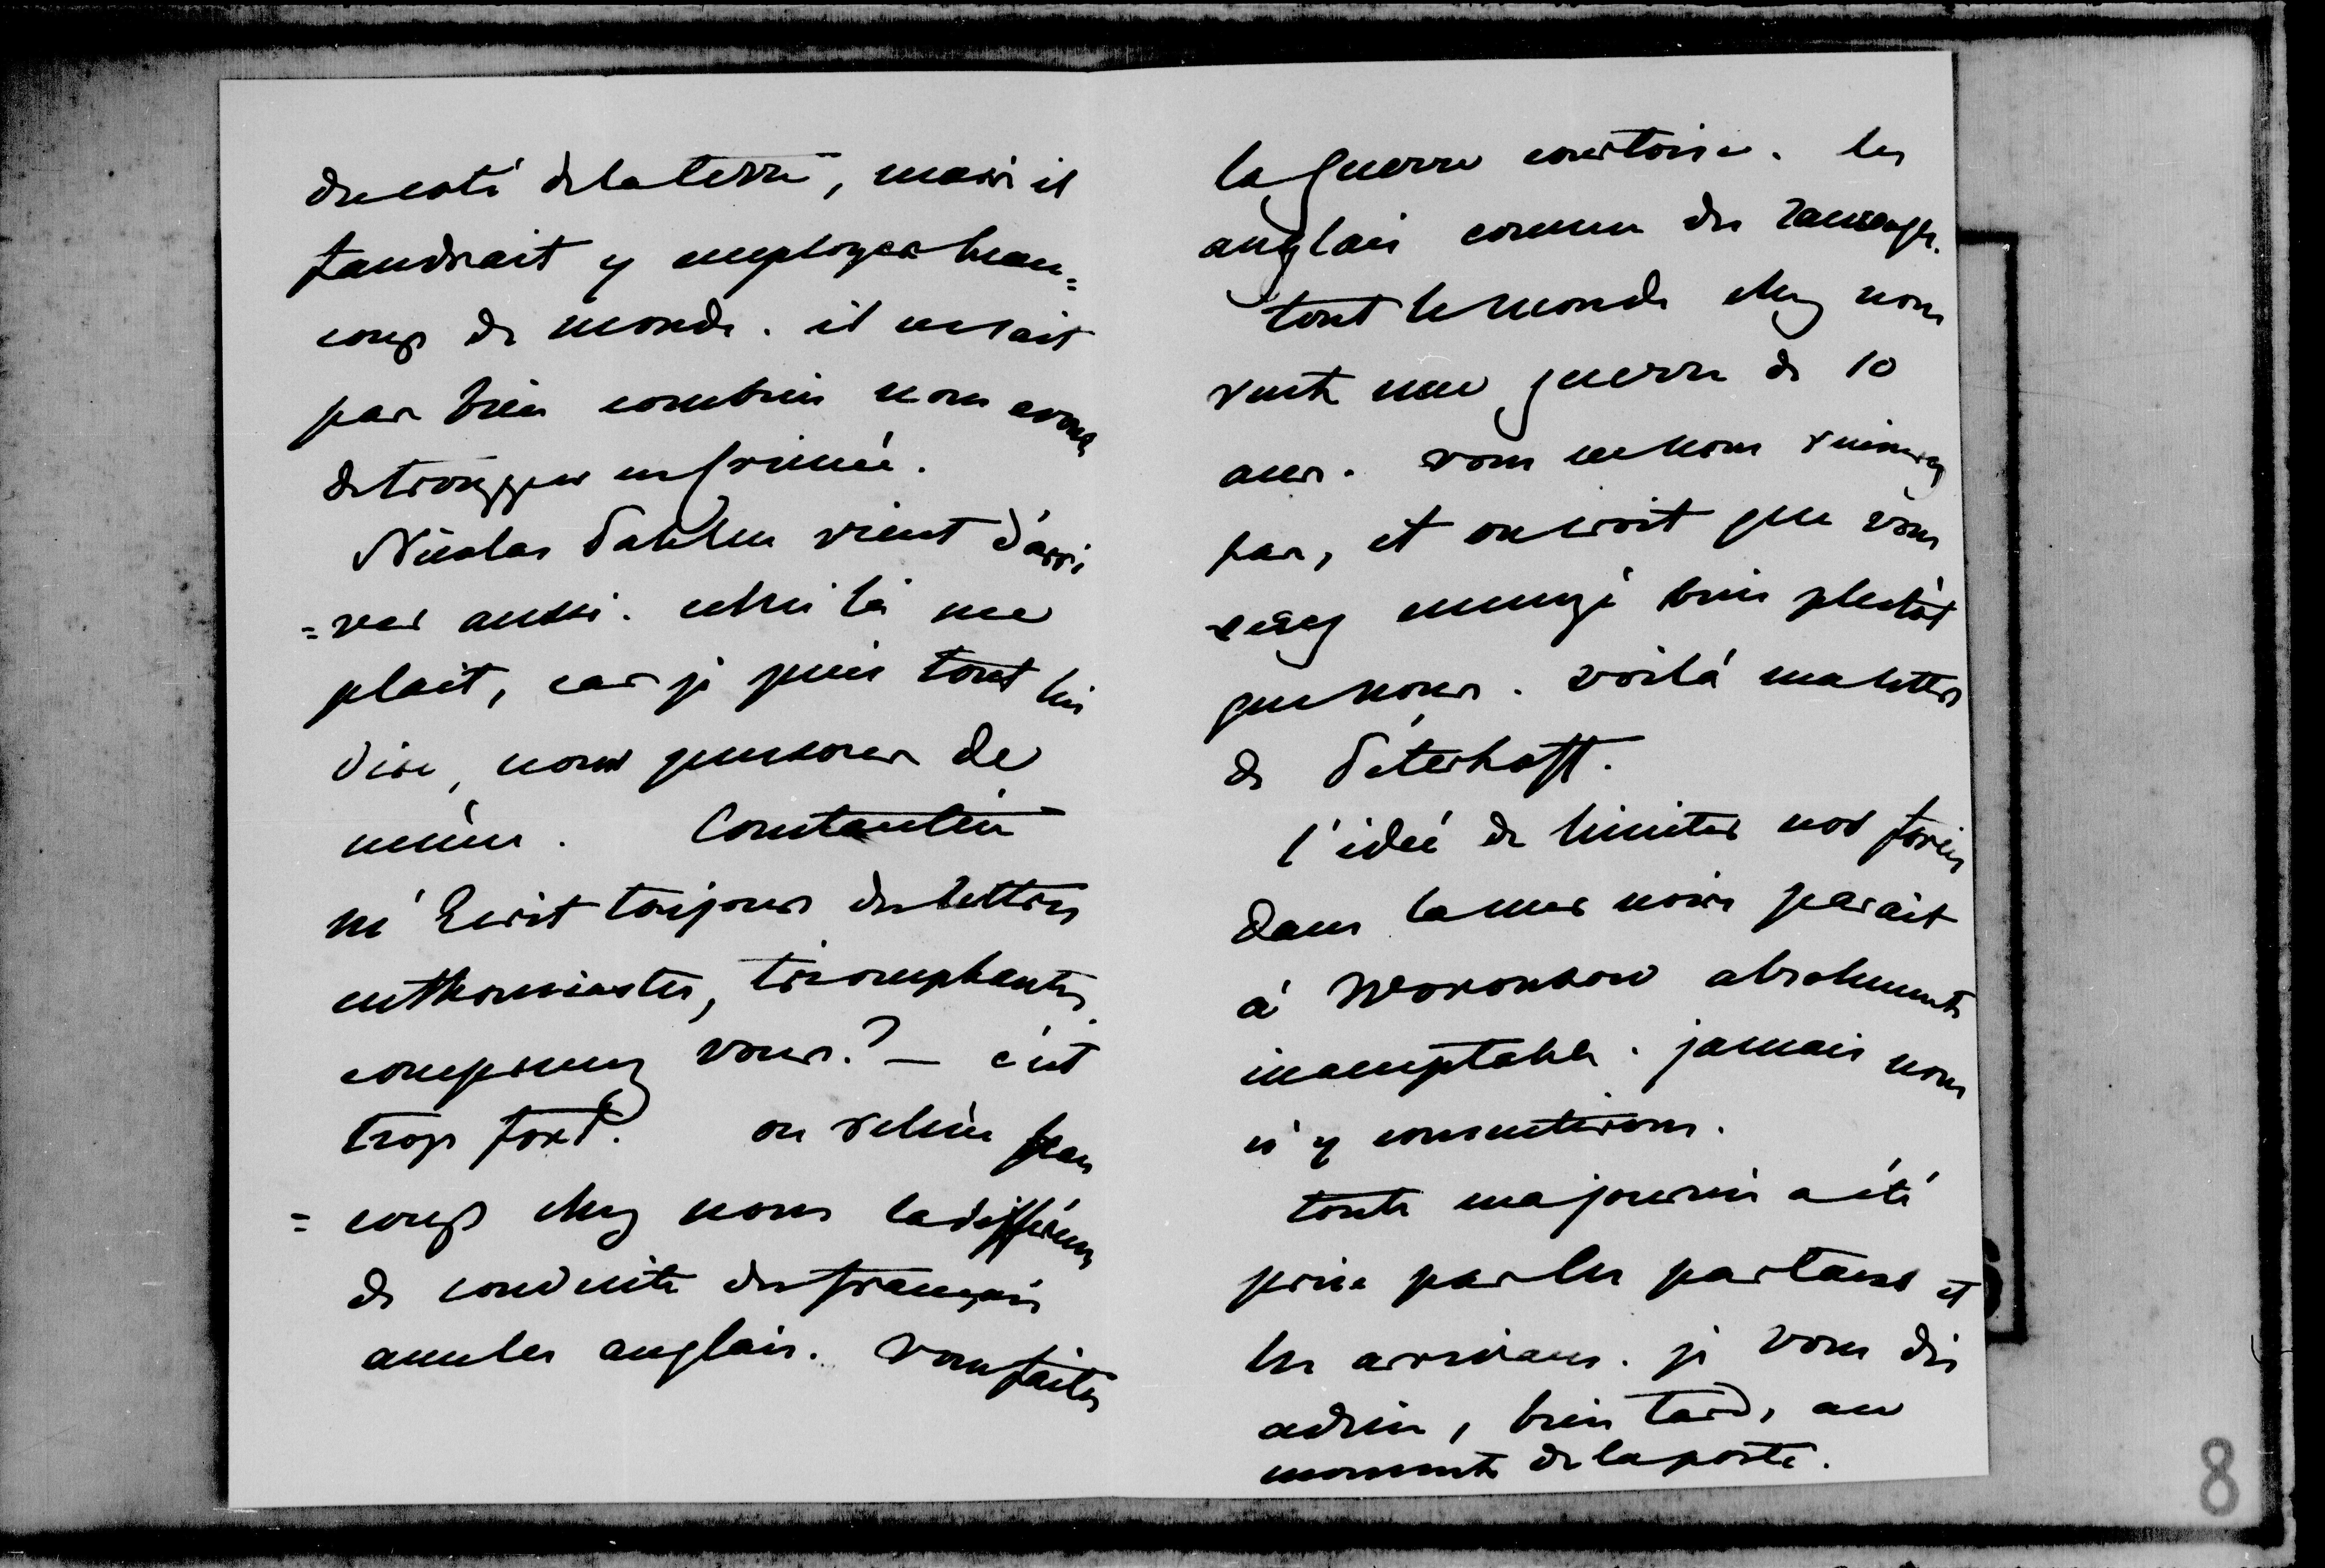 du coté de la terre, mais il
faudrait y employer beau=
coup de monde. il ne sait
pas bien combien nous avons
de trouppes en crimée.
Nicolas Pahlen vient d'arri
=ver aussi. celui là me
plait, car je puis tout lui
dire, nous pensons de
même. Constantin
m'écrit toujours des lettres
enthousiastes, triomphantes.
comprenez vous? — c'est
trop fort. on relève beau
=coup chez nous la différence
de conduite des français
avec les anglais. vous faites
la guerre courtoise. les
anglais comme des sauvages.
tout le monde chez nous
veut une guerre de 10
ans. vous ne nous ruinerez
pas, et on croit que vous
serez ennuyé bien plustôt
que nous. voilà ma lettre
de Péterhoff.
l'idée de limiter nos forces
dans la mer noire parait
à Woronzow absolument
inacceptable. jamais nous
n'y consentirons.
toute ma journée a été
prise par les partans et
les arrivans. je vous dis
adieu, bien tard, au
moment de la poste.
8